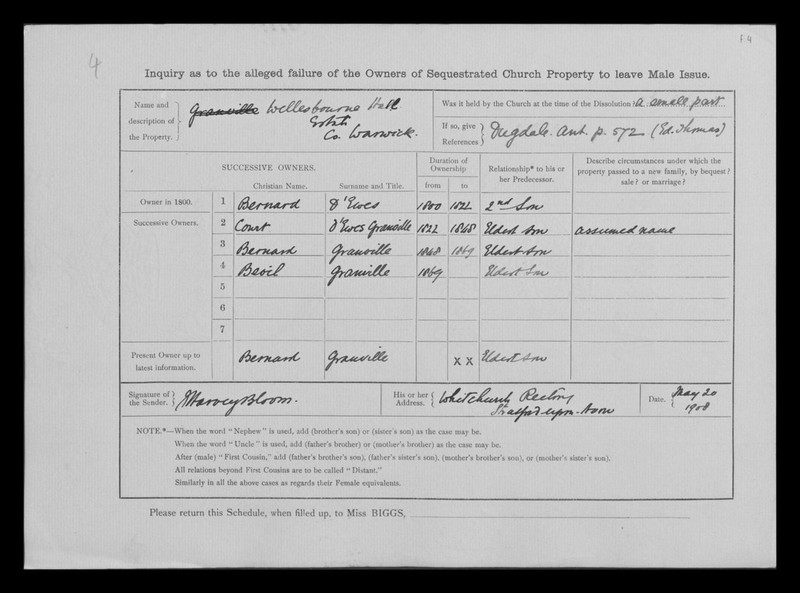 4
f. 4
Inquiry as to the alleged failure of the Owners of Sequestrated Church Property to leave Male Issue.
Name and description of the Property.
Granville Wellesbourne Hall
Estate
Co. Warwick.
Was it held by the Church at the time of the Dissolution? a small part
If so, give References
Dugdale. Ant. p. 572 (Ed. Thomas)
SUCCESSIVE OWNERS.
Christian Name. Surname and Title.
Duration of Ownership
from to
Relationship* to his or her Predecessor.
Describe circumstances under which the property passed to a new family, by bequest? sale? or marriage?
Owner in 1800. 1 Bernard D'Ewes 1800 1822 2nd Son
Successive Owners. 2 Court D'Ewes Granville 1822 1848 Eldest Son assumed name
3 Bernard Granville 1848 1869 Eldest Son
4 Bevil Granville 1869 Eldest Son
5
6
7
Present Owner up to latest information. Bernard Granville x x Eldest Son
Signature of the Sender. J Harvey Bloom.
His or her Address. Whitchurch Rectory
Stratford-upon-Avon
Date. May 20
1908
NOTE.*—When the word "Nephew" is used, add (brother's son) or (sister's son) as the case may be.
When the word "Uncle" is used, add (father's brother) or (mother's brother) as the case may be.
After (male) "First Cousin," add (father's brother's son), (father's sister's son), (mother's brother's son), or (mother's sister's son).
All relations beyond First Cousins are to be called "Distant."
Similarly in all the above cases as regards their Female equivalents.
Please return this Schedule, when filled up, to Miss BIGGS,